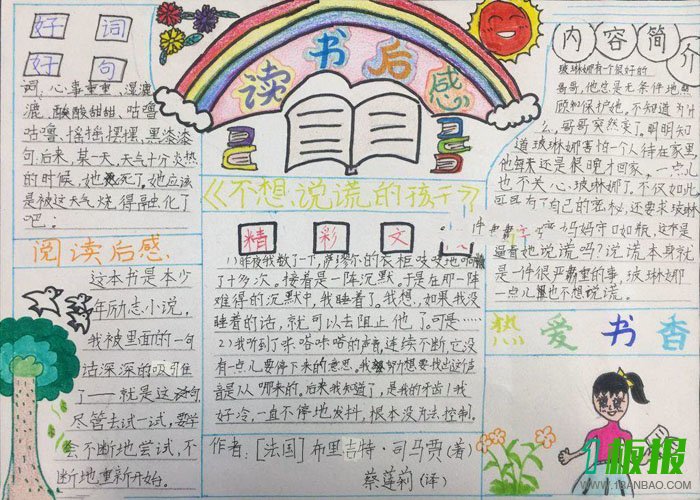 读书后感
好词
好句
词、心事重重、湿漉
漉、酸酸甜甜、咕噜
咕噜、摇摇摆摆、黑漆漆
句:后来,某一天,天气十分炎热
的时候,她死了。她应该
是被这天气,烧得融化了
吧。
阅读后感
这本书是本少
年励志小说,
我被里面的一句
话深深的吸引住
了——就是这句
尽管去试一试,要
会不断地尝试,不
断地重新开始。
《不想说谎的孩子》
精彩文
1)昨夜我数了一下,萨缪尔的衣柜吱吱地响
了十多次。接着是一阵沉默。于是在那一阵
难得的沉默中,我睡着了。我想,如果我没
睡着的话,就可以去阻止他了。可是……
2)我听到了咔嗒咔嗒的声,连续不断它没
有一点儿要停下来的意思。我努所想要找出这个声
音是从哪来的。后来我知道了,是我的牙齿!我
好冷,一直不停地发抖,根本没方法控制。
作者:[法国]布里吉特·司马贾(著)
蔡莲莉(译)
内容简介
玻琳娜有个很好的
哥哥,他总是无条件地照
顾和保护她。不知道为什
么,哥哥突然变了。明明知
道玻琳娜害怕一个人待在家里,
他每天还是很晚才回家,一点儿
也不关心玻琳娜了。不仅如此
可哥有了自己的密秘,还要求玻琳
妈妈守口如瓶,这不是
逼着她说谎吗?说谎本身就
是一件很严肃的事,玻琳娜
一点儿也不想说谎。
热爱书香
1板报
WWW.1BANBAO.COM